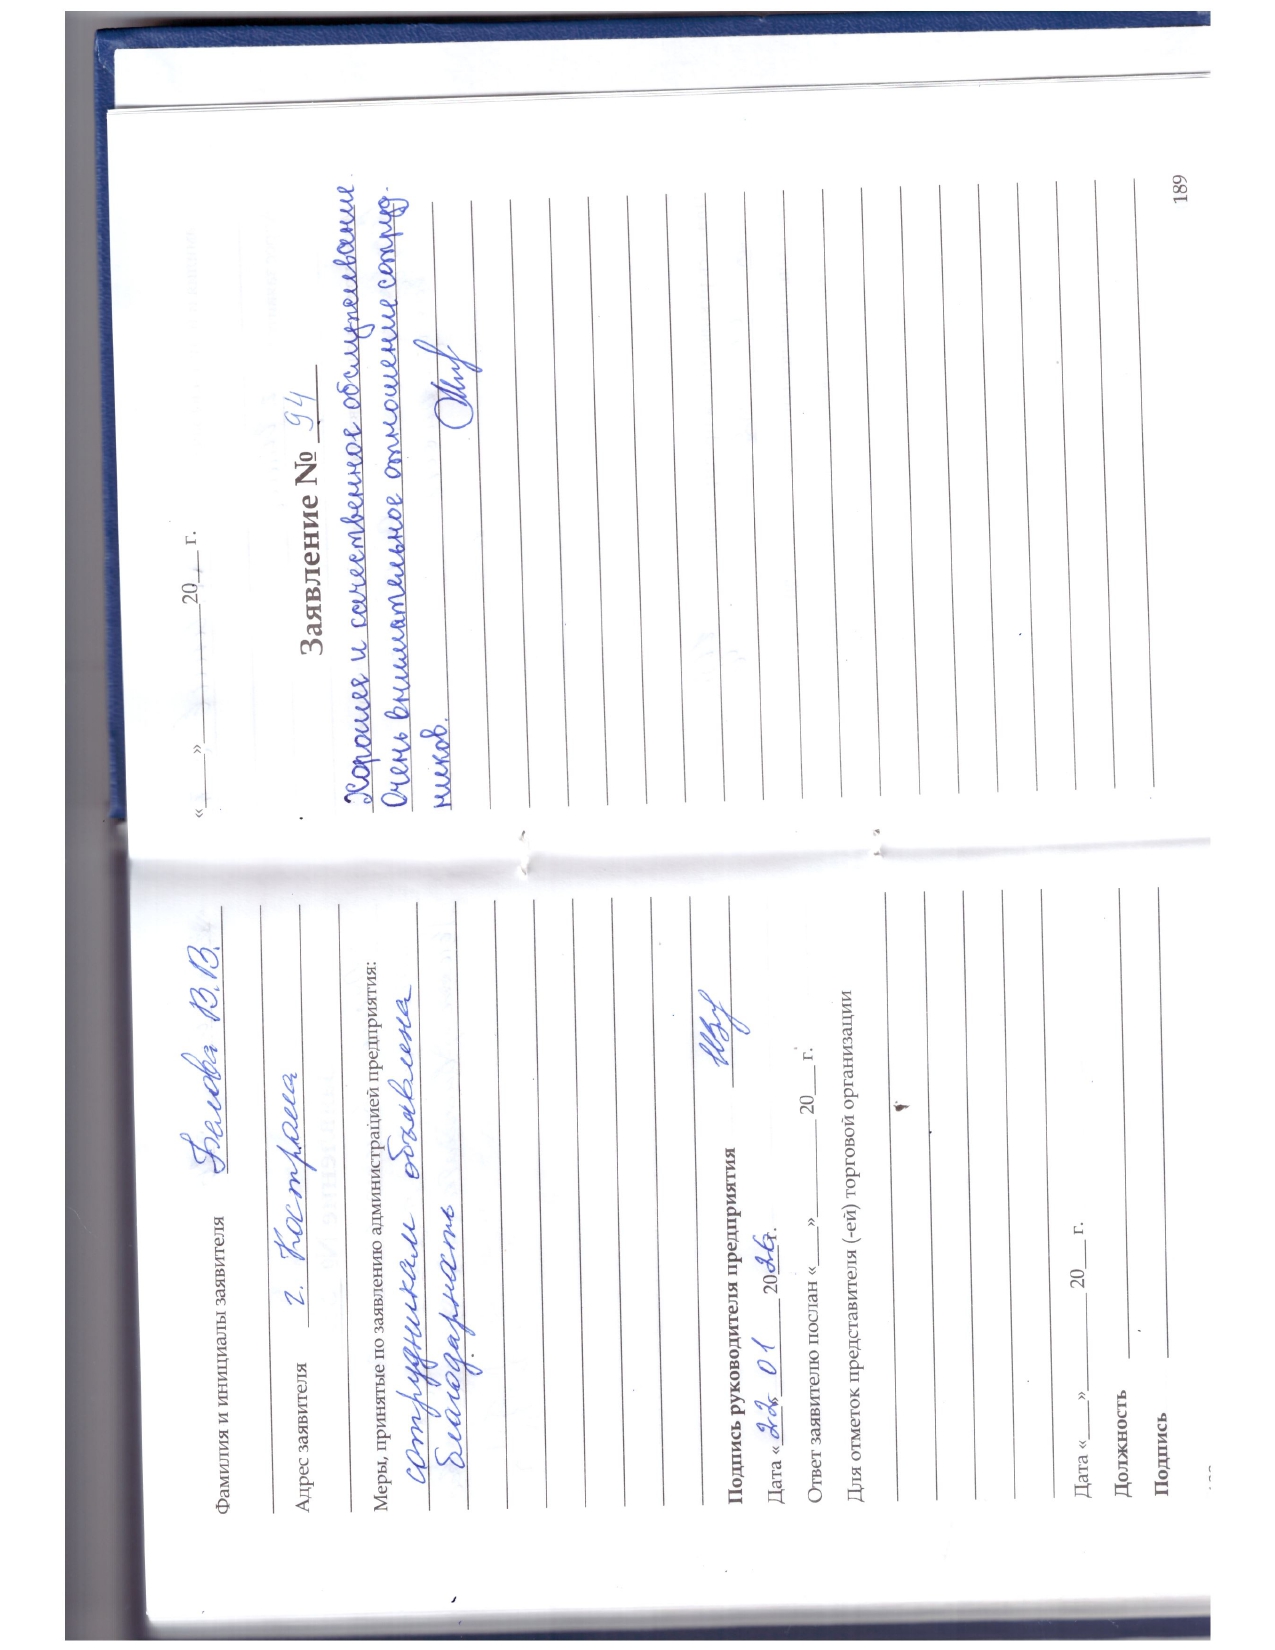 Фамилия и инициалы заявителя Белова В.В.
Адрес заявителя г. Кострома
Меры, принятые по заявлению администрацией предприятия:
сотрудникам объявлена
благодарность
Подпись руководителя предприятия
Дата «22» 01 2026г.
Ответ заявителю послан «___»________ 20___ г.
Для отметок представителя (-ей) торговой организации
Дата «___»________ 20___ г.
Должность
Подпись
«___»________20___ г.
Заявление № 94
Хорошее и качественное обслуживание.
Очень внимательное отношение сотруд-
ников.
189